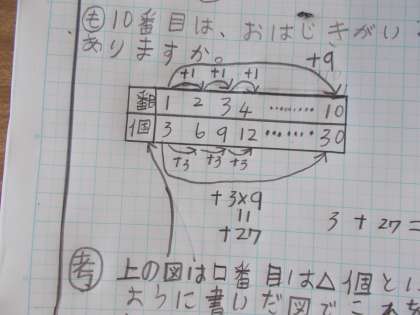 も 10番目は、おはじきがい
ありますか。
+9
+1 +1 +1
番 1 2 3 4 ……… 10
個 3 6 9 12 ……… 30
+3 +3 +3
+3×9
=
+27
3 + 27 =
考 上の図は口番目は△個とい
ように書いた図で